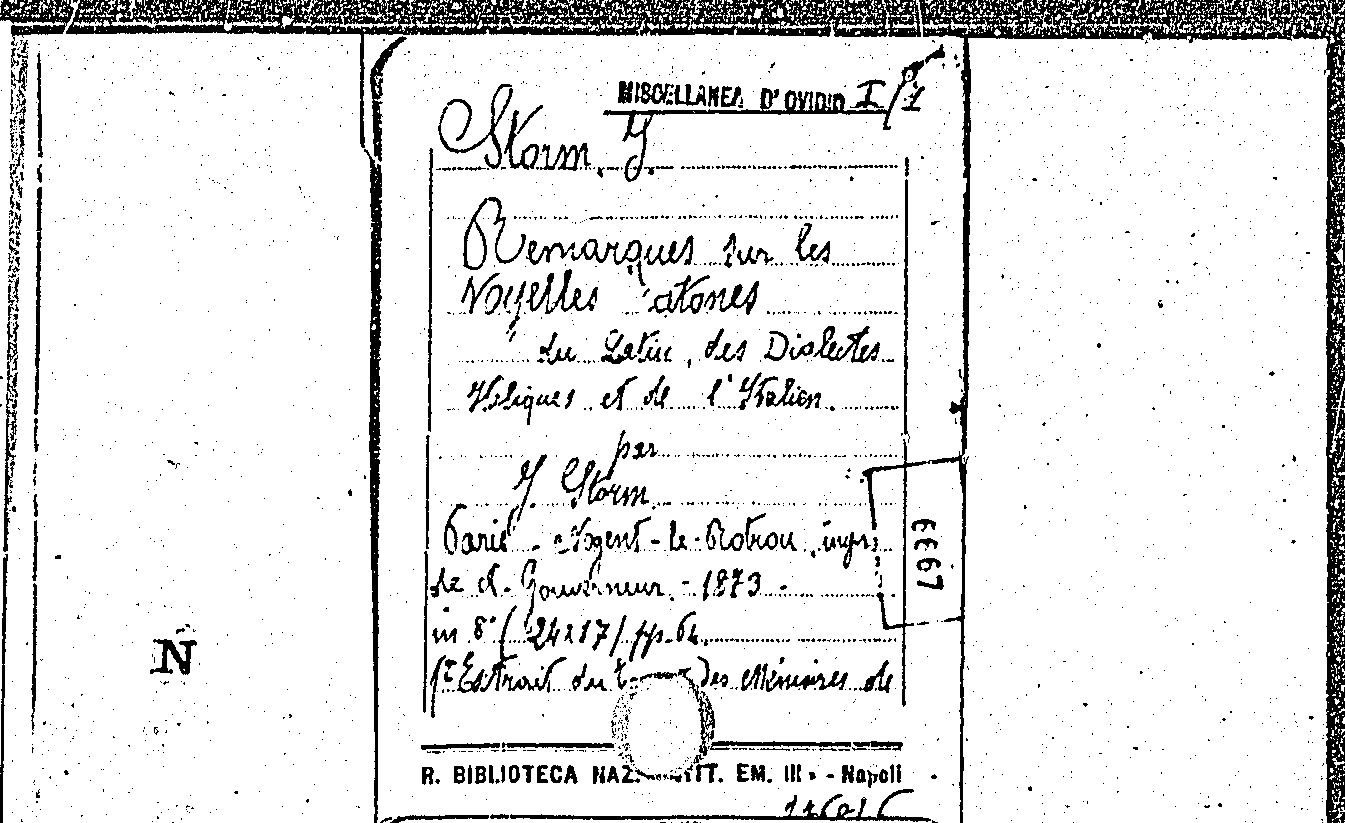 MISCELLANEA D'OVIDIO I/1
Storm. J.
Remarques sur les
Voyelles atones
du Latin, des Dialectes
Italiques et de l'Italien.
par
J Storm
Paris - Nogent-le-Rotrou, impr.
de A. Gouverneur. - 1873 -
in 8° (24x17) pp.
(Estrait du des Mémoires de
6667
N
R. BIBLIOTECA NAZ. VITT. EM. III - Napoli